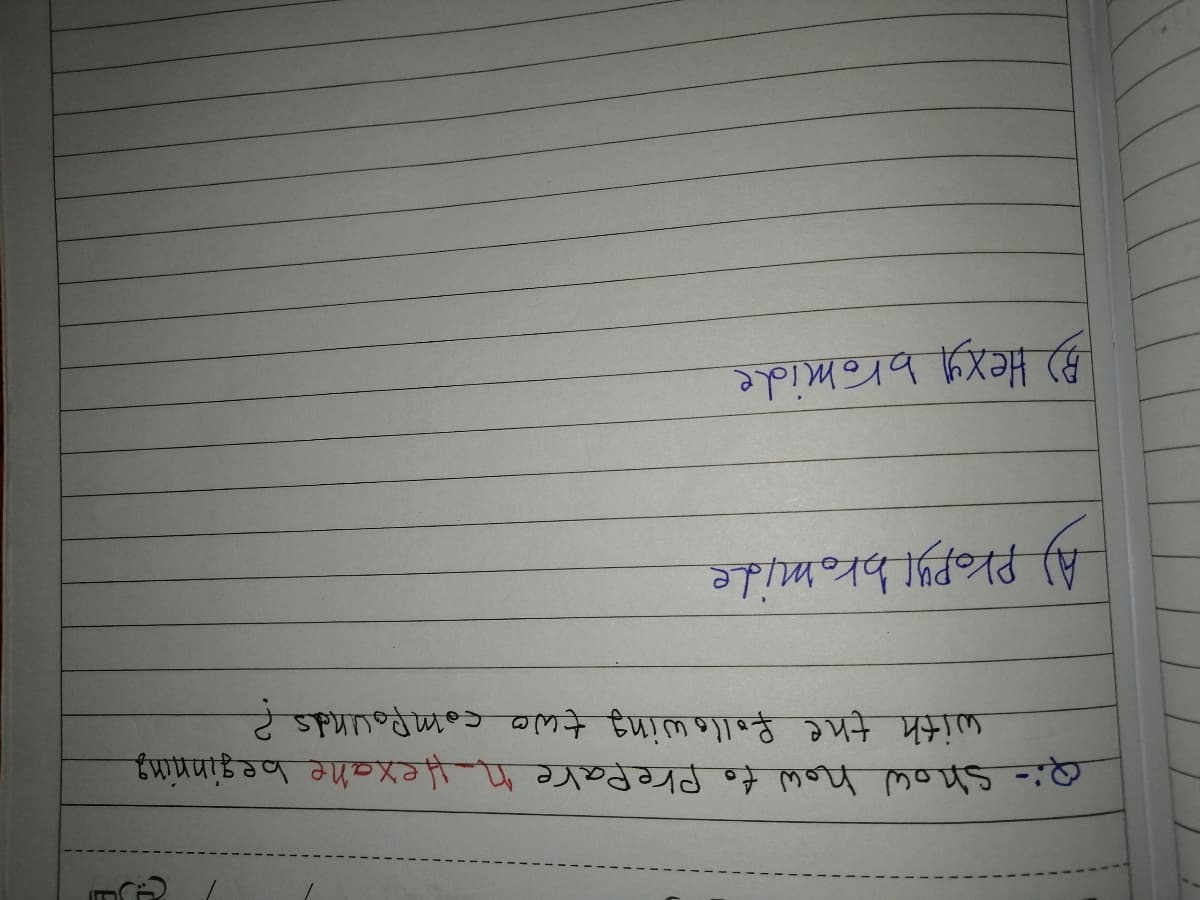 Q:- Show how to prepare n-Hexane beginning
with the following two compounds?
A) propyl bromide
B) Hexyl bromide